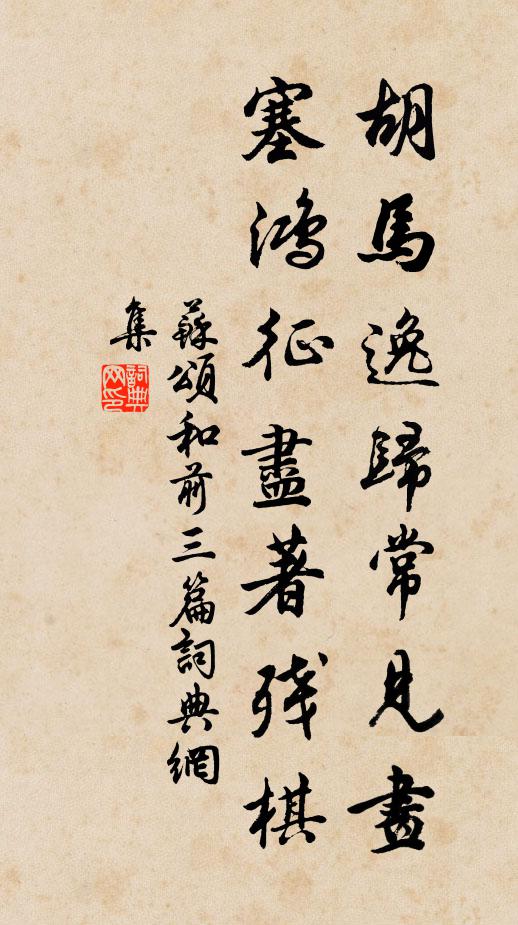 胡馬逸歸常見畫
塞鴻征盡著殘棋
蘇頌和前三篇詞典網
集
詞典網印